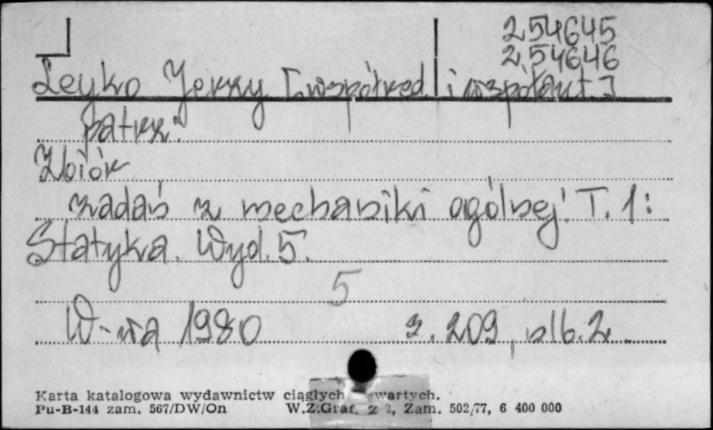 254645
254646
Leyko Jerzy [współred. i współaut.]
patrz:
Zbiór
zadań z mechaniki ogólnej. T. 1:
Statyka. Wyd. 5.
5
W-wa 1980 s. 209, nlb. 2
Karta katalogowa wydawnictw ciągłych wartych.
Pu-B-144 zam. 567/DW/On W.Z.Graf. Z 2, Zam. 502/77, 6 400 000